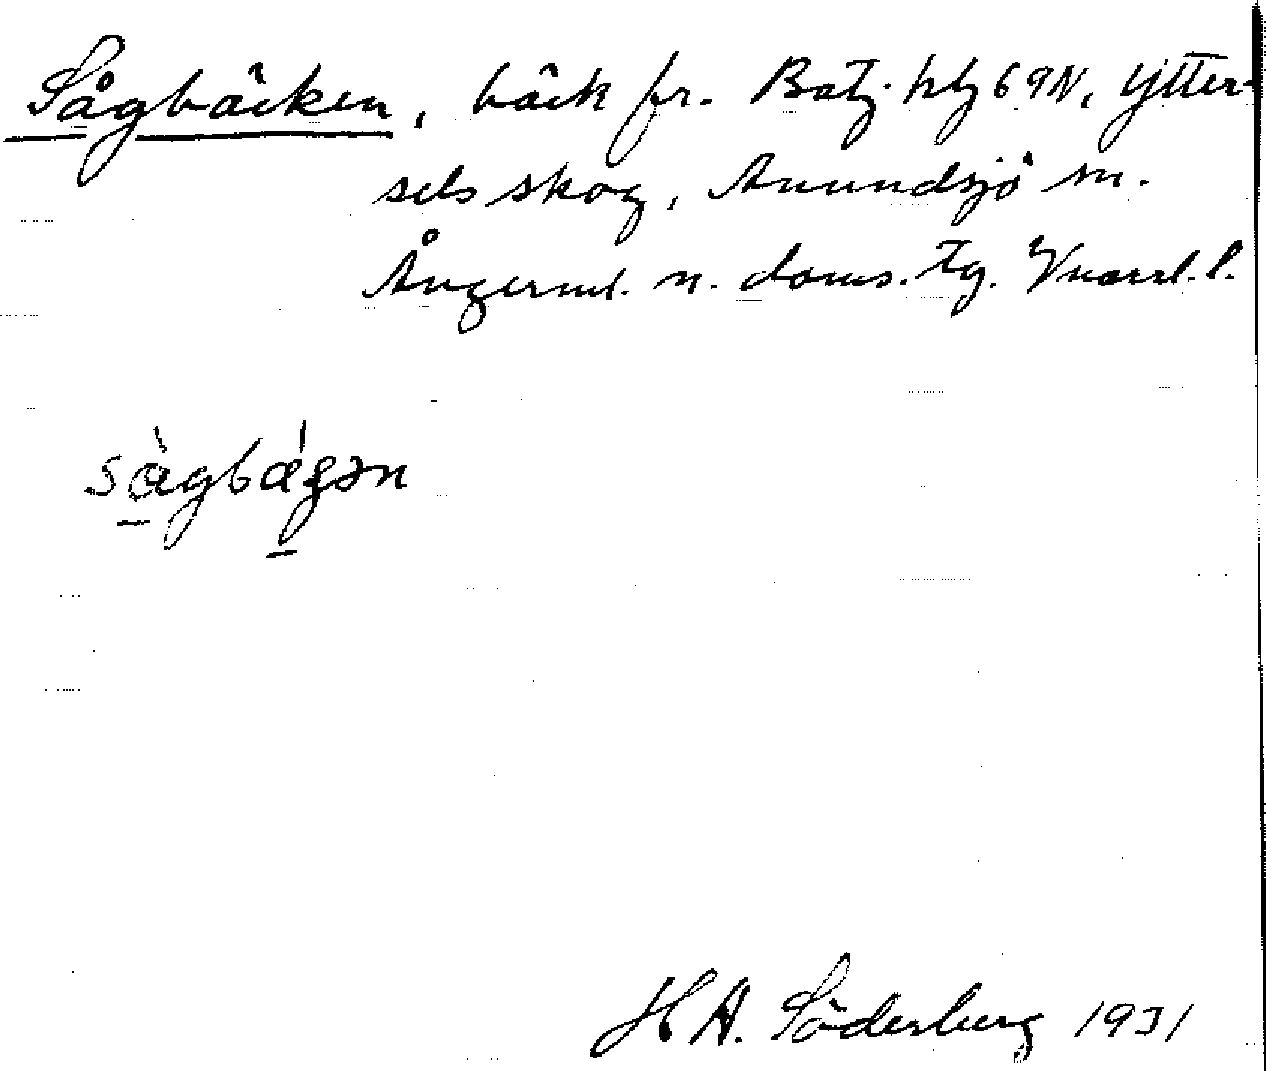 Sågbäcken, bäck fr. Batz. blg 69N, Ytter-
sels skog, Anundsjö sn.
Ångerml. n. doms. tg. Vnorrl. l.
sågbægən
H A. Söderberg 1931